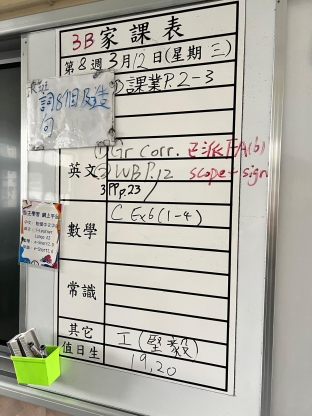 3B家課表
第8週3月12日(星期三)
詞8個及造
句
課業P.2-3
英文
① Gr Corr. 已派FA(6)
② WB P.12 scope + sign
3 PP p.23
數學
C Ex6(1-4)
常識
其它
工(堅毅)
值日生
19,20